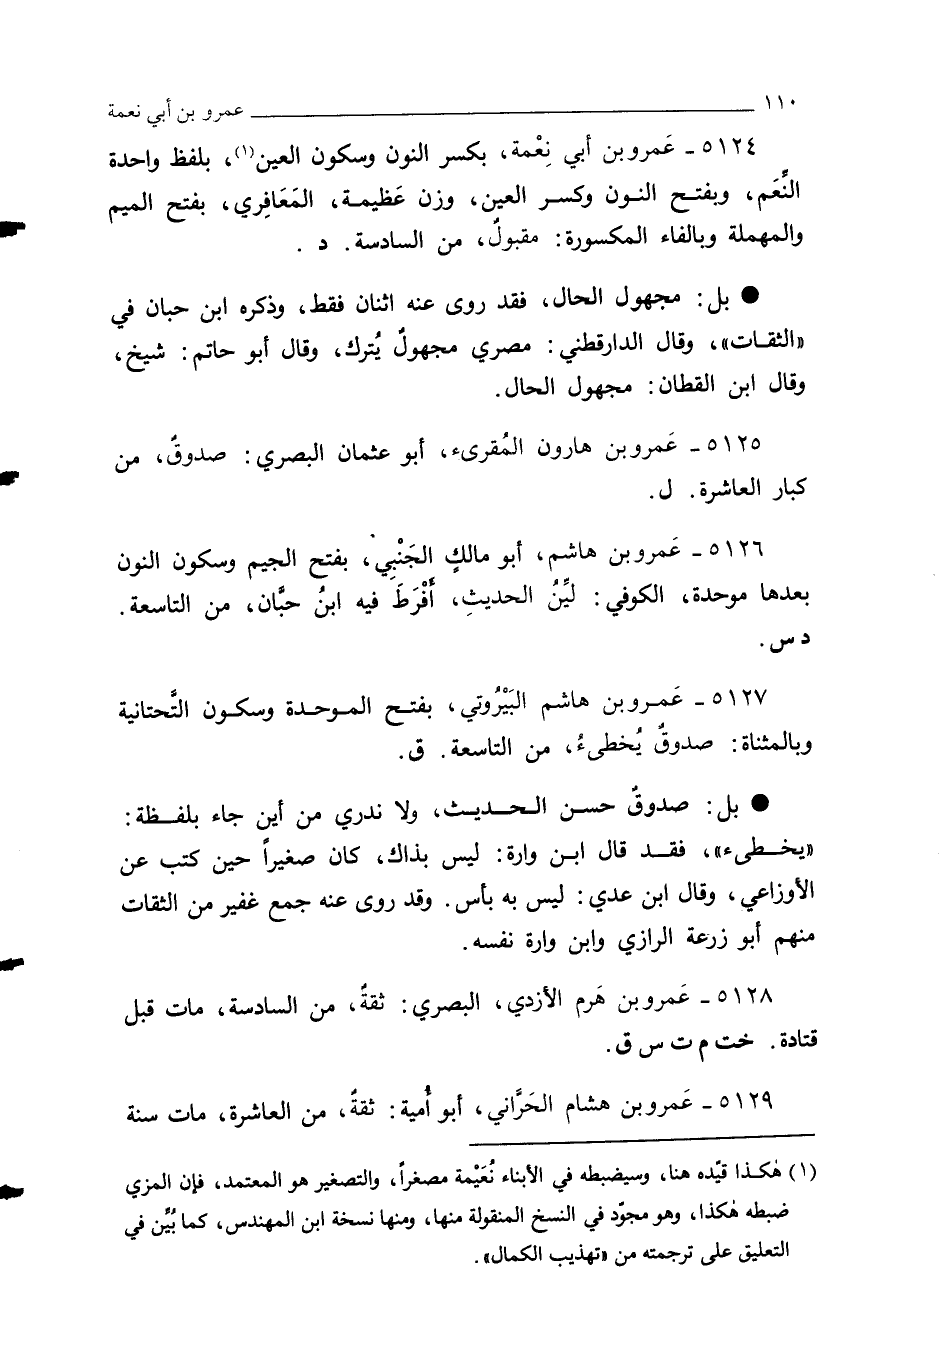 ١١٠ عمرو بن أبي نعمة
٥١٢٤ ـ عَمرو بن أبي نِعْمة، بكسر النون وسكون العين(١)، بلفظ واحدة
النِّعَم، وبفتح النون وكسر العين، وزن عَظيمة، المَعَافِري، بفتح الميم
والمهملة وبالفاء المكسورة: مقبولٌ، من السادسة. د .
● بل: مجهول الحال، فقد روى عنه اثنان فقط، وذكره ابن حبان في
«الثقات»، وقال الدارقطني: مصري مجهولٌ يُترك، وقال أبو حاتم: شيخ،
وقال ابن القطان: مجهول الحال.
٥١٢٥ ـ عَمرو بن هارون المُقرىء، أبو عثمان البصري: صدوقٌ، من
كبار العاشرة. ل.
٥١٢٦ ـ عَمرو بن هاشم، أبو مالكٍ الجَنْبِي، بفتح الجيم وسكون النون
بعدها موحدة، الكوفي: ليِّنُ الحديثِ، أَفْرَطَ فيه ابنُ حبَّان، من التاسعة.
د س.
٥١٢٧ ـ عَمرو بن هاشم البَيْرُوتي، بفتح الموحدة وسكون التَّحتانية
وبالمثناة: صدوقٌ يُخطىءُ، من التاسعة. ق.
● بل: صدوقٌ حسن الحديث، ولا ندري من أين جاء بلفظة:
«يخطىء»، فقد قال ابن وارة: ليس بذاك، كان صغيراً حين كتب عن
الأوزاعي، وقال ابن عدي: ليس به بأس. وقد روى عنه جمع غفير من الثقات
منهم أبو زرعة الرازي وابن وارة نفسه.
٥١٢٨ ـ عَمرو بن هَرم الأزدي، البصري: ثقةٌ، من السادسة، مات قبل
قتادة. خت م ت س ق.
٥١٢٩ ـ عَمرو بن هشام الحَرَّاني، أبو أُمية: ثقةٌ، من العاشرة، مات سنة
(١) هٰكذا قيّده هنا، وسيضبطه في الأبناء نُعَيْمة مصغراً، والتصغير هو المعتمد، فإن المزي
ضبطه هٰكذا، وهو مجوّد في النسخ المنقولة منها، ومنها نسخة ابن المهندس، كما بُيِّن في
التعليق على ترجمته من «تهذيب الكمال».